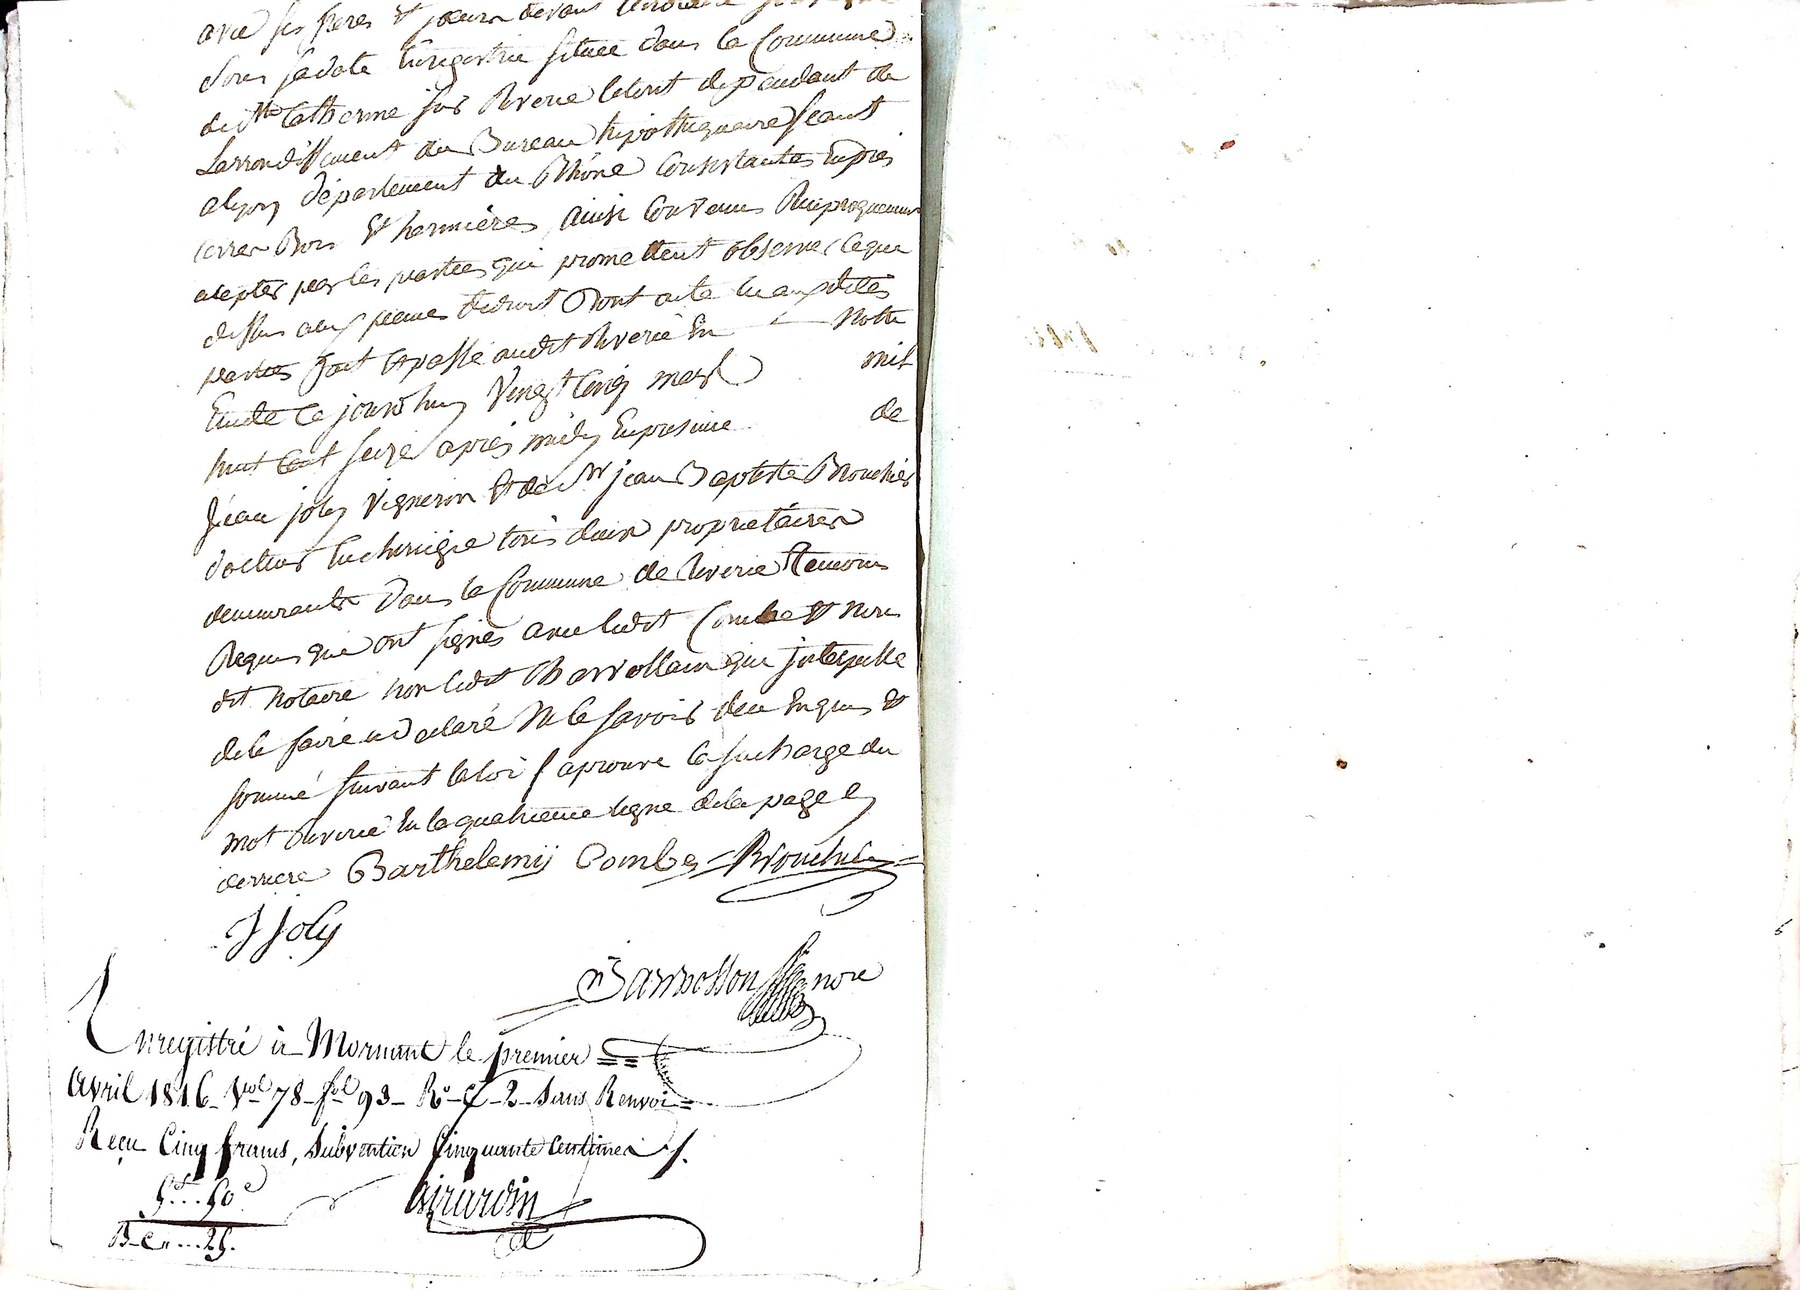 avec ses freres et soeurs devant
sous sa date Enregistrée située dans la Commune
de Ste Catherine sur Riverie le tout dependant de
Larrondissement du Bureau hipothequaire seant
a Lyon département du Rhône Consistantes En prés
terres Bois et hermières, Ainsi Convenus Reciproquement
aceptés par les parties qui promettent observer Ce que
dessus aux peines de droit Dont acte lu auxdites
parties fait et passé audit Riverie En notre
Etude Ce jourdhuy Vingt Cinq mars mil
huit Cent seize après midy En presence de
Jean joly Vigneron et de Sr jean Baptiste Brouchier
docteur En chirurgie tous deux propriétaires
demeurants dans la Commune de Riverie temoins
Requis qui ont signés avec ledit Combe et nous
dit notaire non ledit Charvollain qui interpellé
de le faire a déclaré ne le savoir de ce Enquis et
sommé suivant la loi / aprouvé la surcharge du
mot Riverie En la quatrieme ligne de la page
derriere Barthelemij Combe Brouchier
J Joly
Barrosson nore
Enregistré à Mornant le premier
Avril 1816 Vol 78 fol 93 Ro C 2 Sans Renvoi
Reçu Cinq francs, Subvention Cinquante Centimes /.
5f....50c
Girardin
B_C....25.